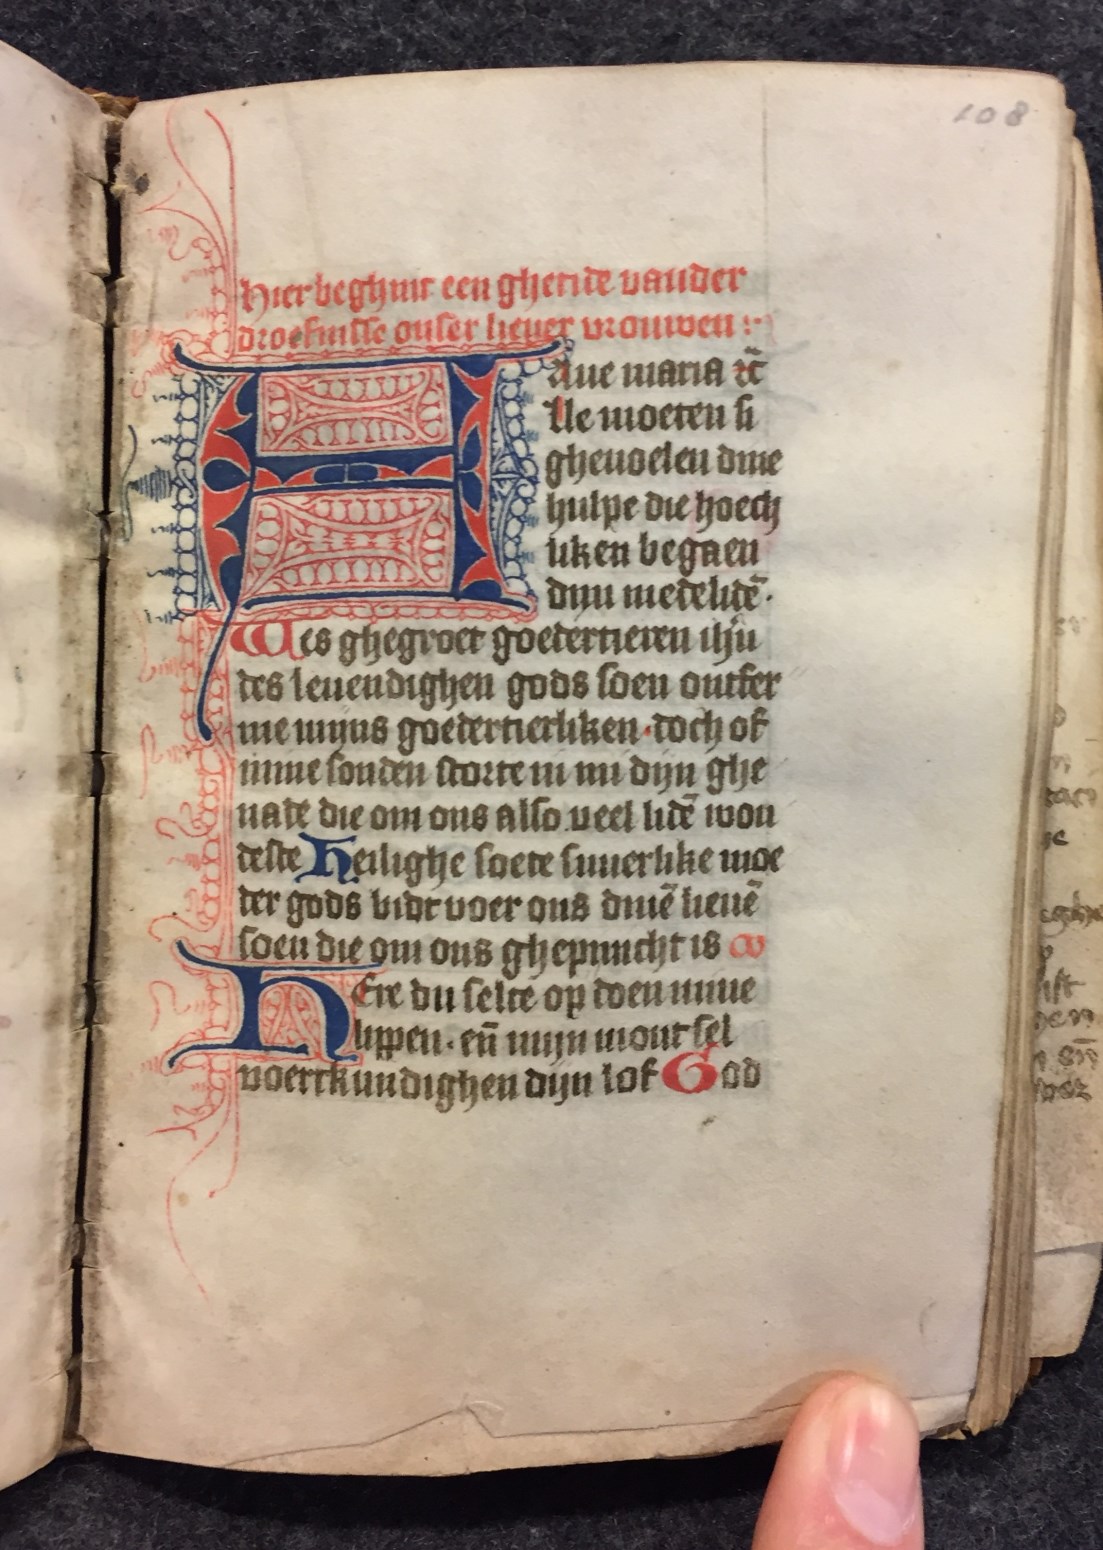 108
Hier beghint een ghetide vander
droefnisse onser liever vrouwen :·
Aue maria ⁊c̄
Alle moeten si
gheuoelen dine
hulpe die hoech
liken begaen
dijn medelidē·
Wes ghegroet goedertieren ihū
des leuendighen gods soen ontfer
me mijns goedertierliken·doch of
mine sonden storte in mi dijn ghe
nade die om ons also veel lidē wou
deste Heilighe soete suuerlike moe
der gods bidt voer ons dinē lieuē
soen die om ons ghepinicht is
HEre du selte op doen mine
lippen· eñ mijn mont sel
voertkundighen dijn lof God